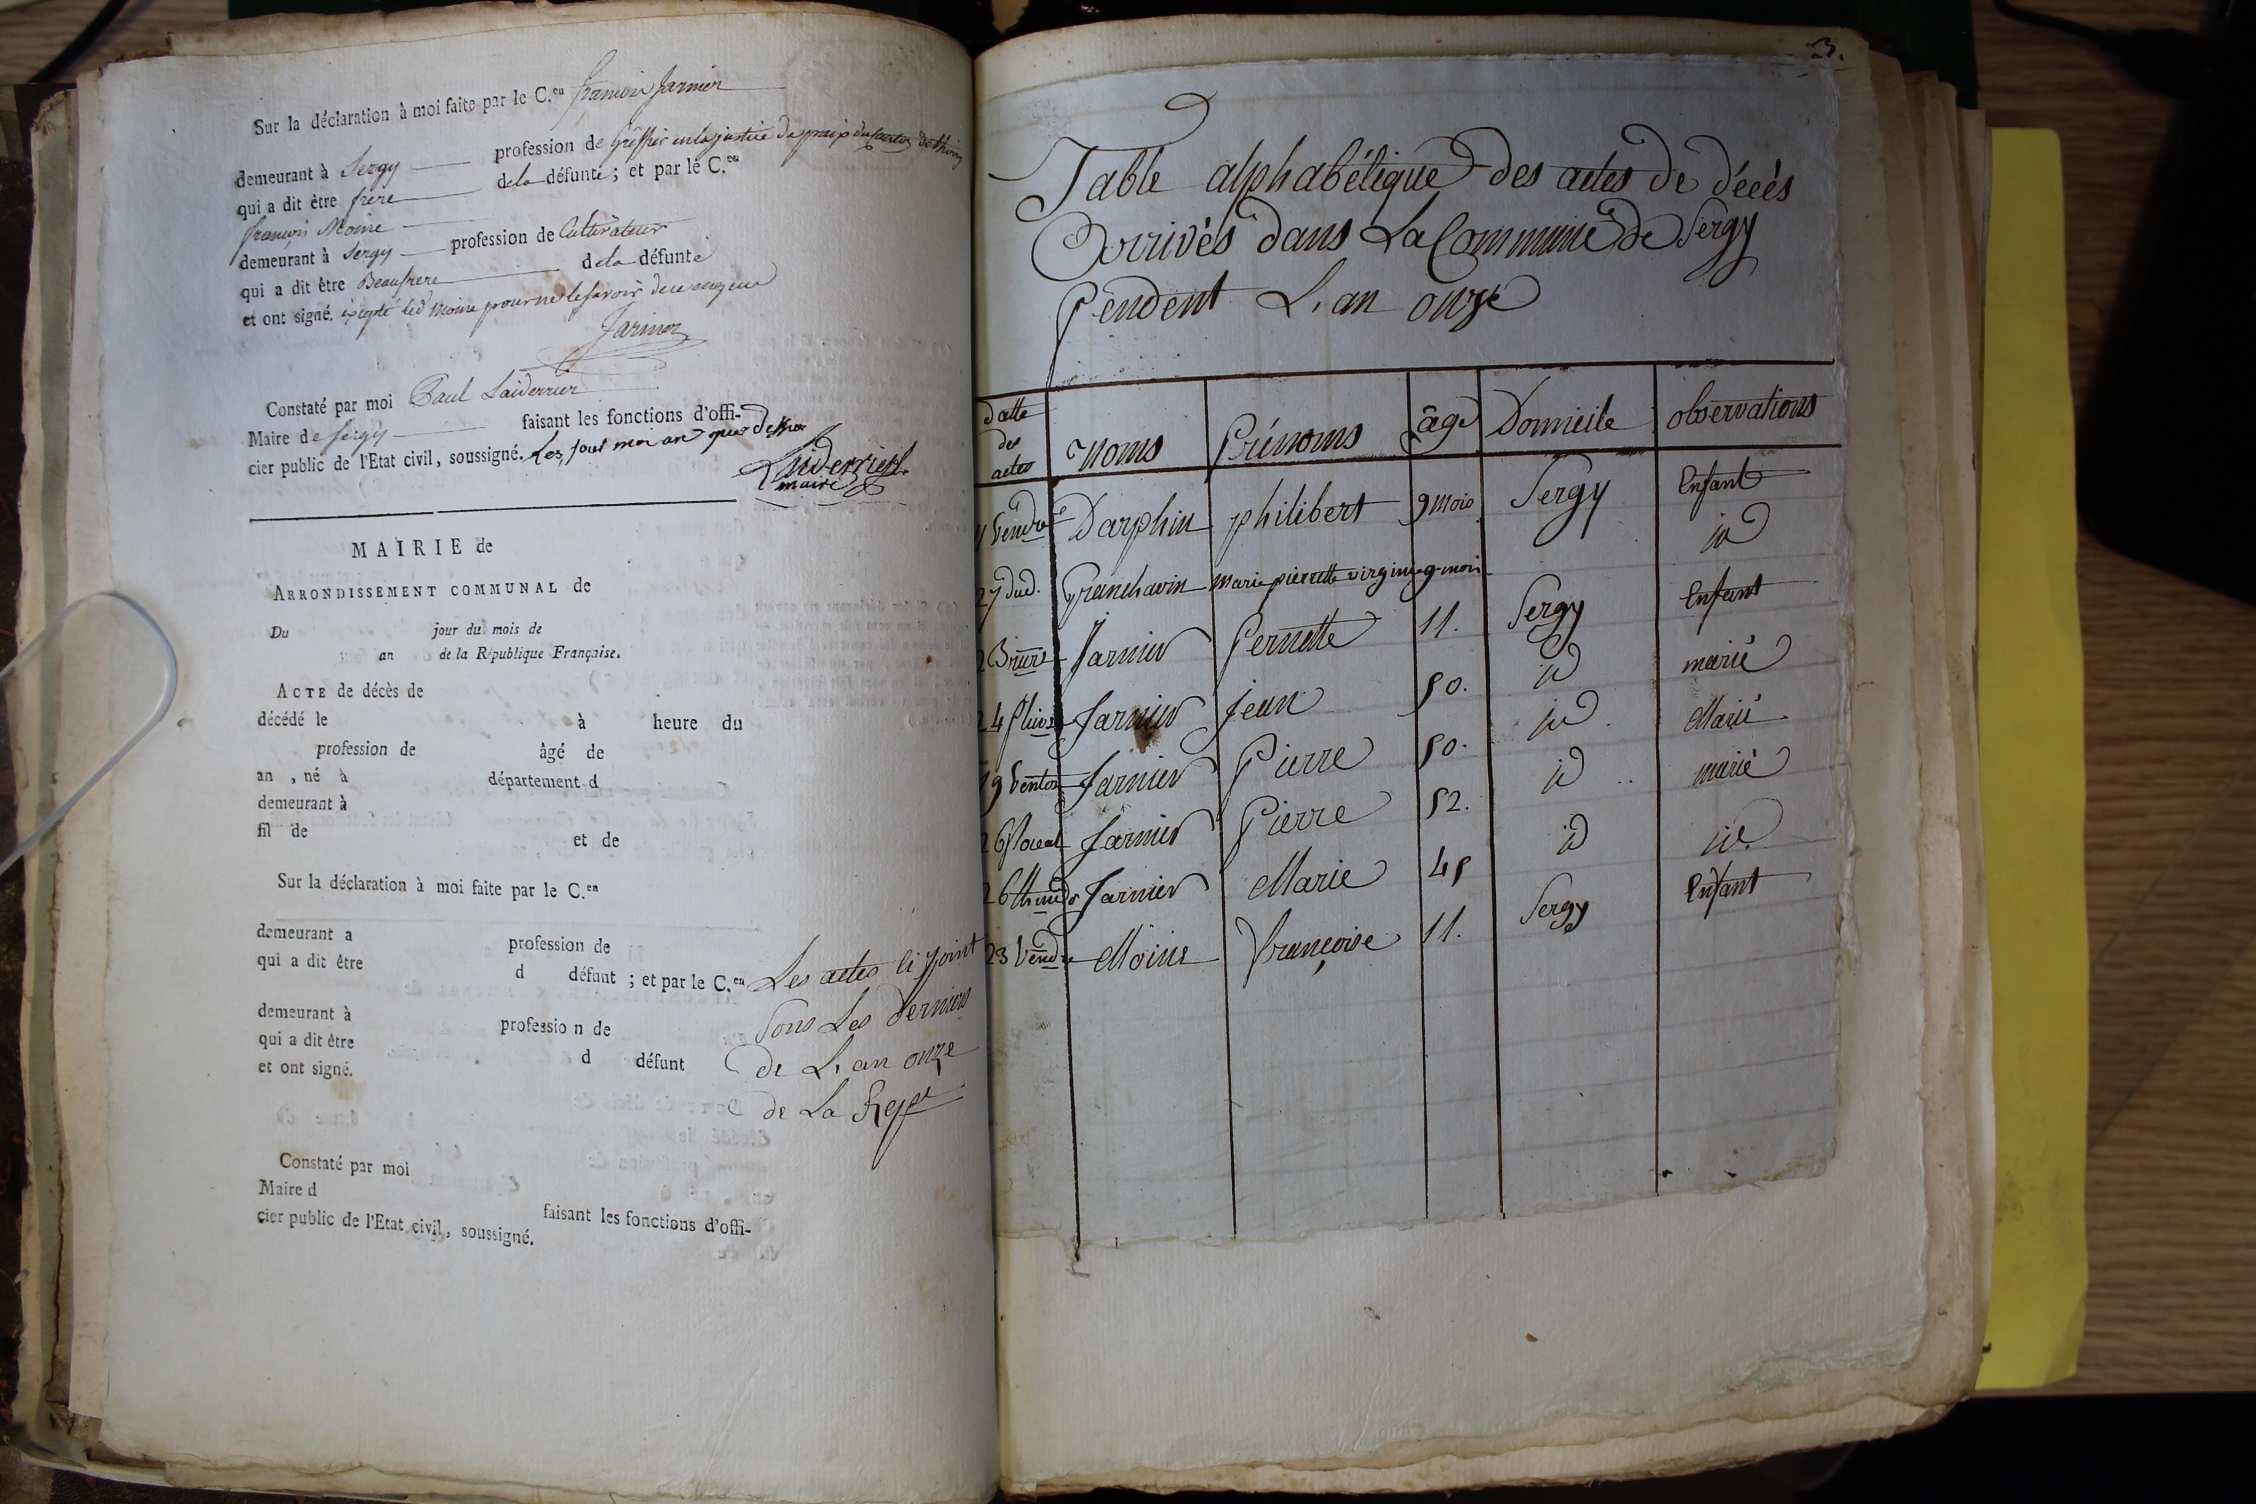 Sur la déclaration à moi faite par le C.en françois Jarnier
demeurant à Sergy profession de Greffier en la justice de paix du canton de thoiry
qui a dit être frere de la défunte ; et par le C.en
françois Moine
demeurant à Sergy profession de Cultivateur
qui a dit être Beaufrere de la défunte
et ont signé. excepté led Moine pour ne le savoir de ce enquis
Jarnier
Constaté par moi Paul Laiderrier
Maire de Sergy faisant les fonctions d'offi-
cier public de l'Etat civil, soussigné. Les jour moi an que dessus
Laiderrier
maire
MAIRIE de
ARRONDISSEMENT COMMUNAL de
Du jour du mois de
an de la République Française.
ACTE de décès de
décédé le à heure du
profession de âgé de
an , né à département d
demeurant à
fil de et de
Sur la déclaration à moi faite par le C.en
demeurant a profession de
qui a dit être d défunt ; et par le C.en
demeurant à profession de
qui a dit être d défunt
et ont signé.
Les actes Ci joint
Sons Les derniers
de L'an onze
de La Repe
Constaté par moi
Maire d faisant les fonctions d'offi-
cier public de l'Etat civil, soussigné.
3.
Table alphabétique des actes de décès
Arrivés dans La Commune de Sergy
Pendent L'an onze
datte des actes Noms Prénoms âge Domicile observations
Vendre Darphin philibert 9 mois Sergy Enfant
27 Grenchavin Marie pierrette virginie 9 mois id
2 Brure Jarnier Pernette 11. Sergy Enfant
24 Pluvs Jarnier Jean 50. id marié
19 Ventos Jarnier Pierre 50. id Marié
26 floreal Jarnier Pierre 52. id marié
26 thermdr Jarnier Marie 45 id id.
23 Vendre Moine Françoise 11. Sergy Enfant